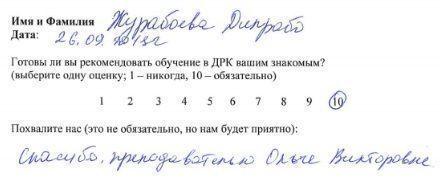 Имя и Фамилия Журабоева Дилрабо
Дата: 26.09.2013г
Готовы ли вы рекомендовать обучение в ДРК вашим знакомым?
(выберите одну оценку; 1 – никогда, 10 – обязательно)
1 2 3 4 5 6 7 8 9 10
Похвалите нас (это не обязательно, но нам будет приятно):
Спасибо, преподавателю Ольге Викторовне